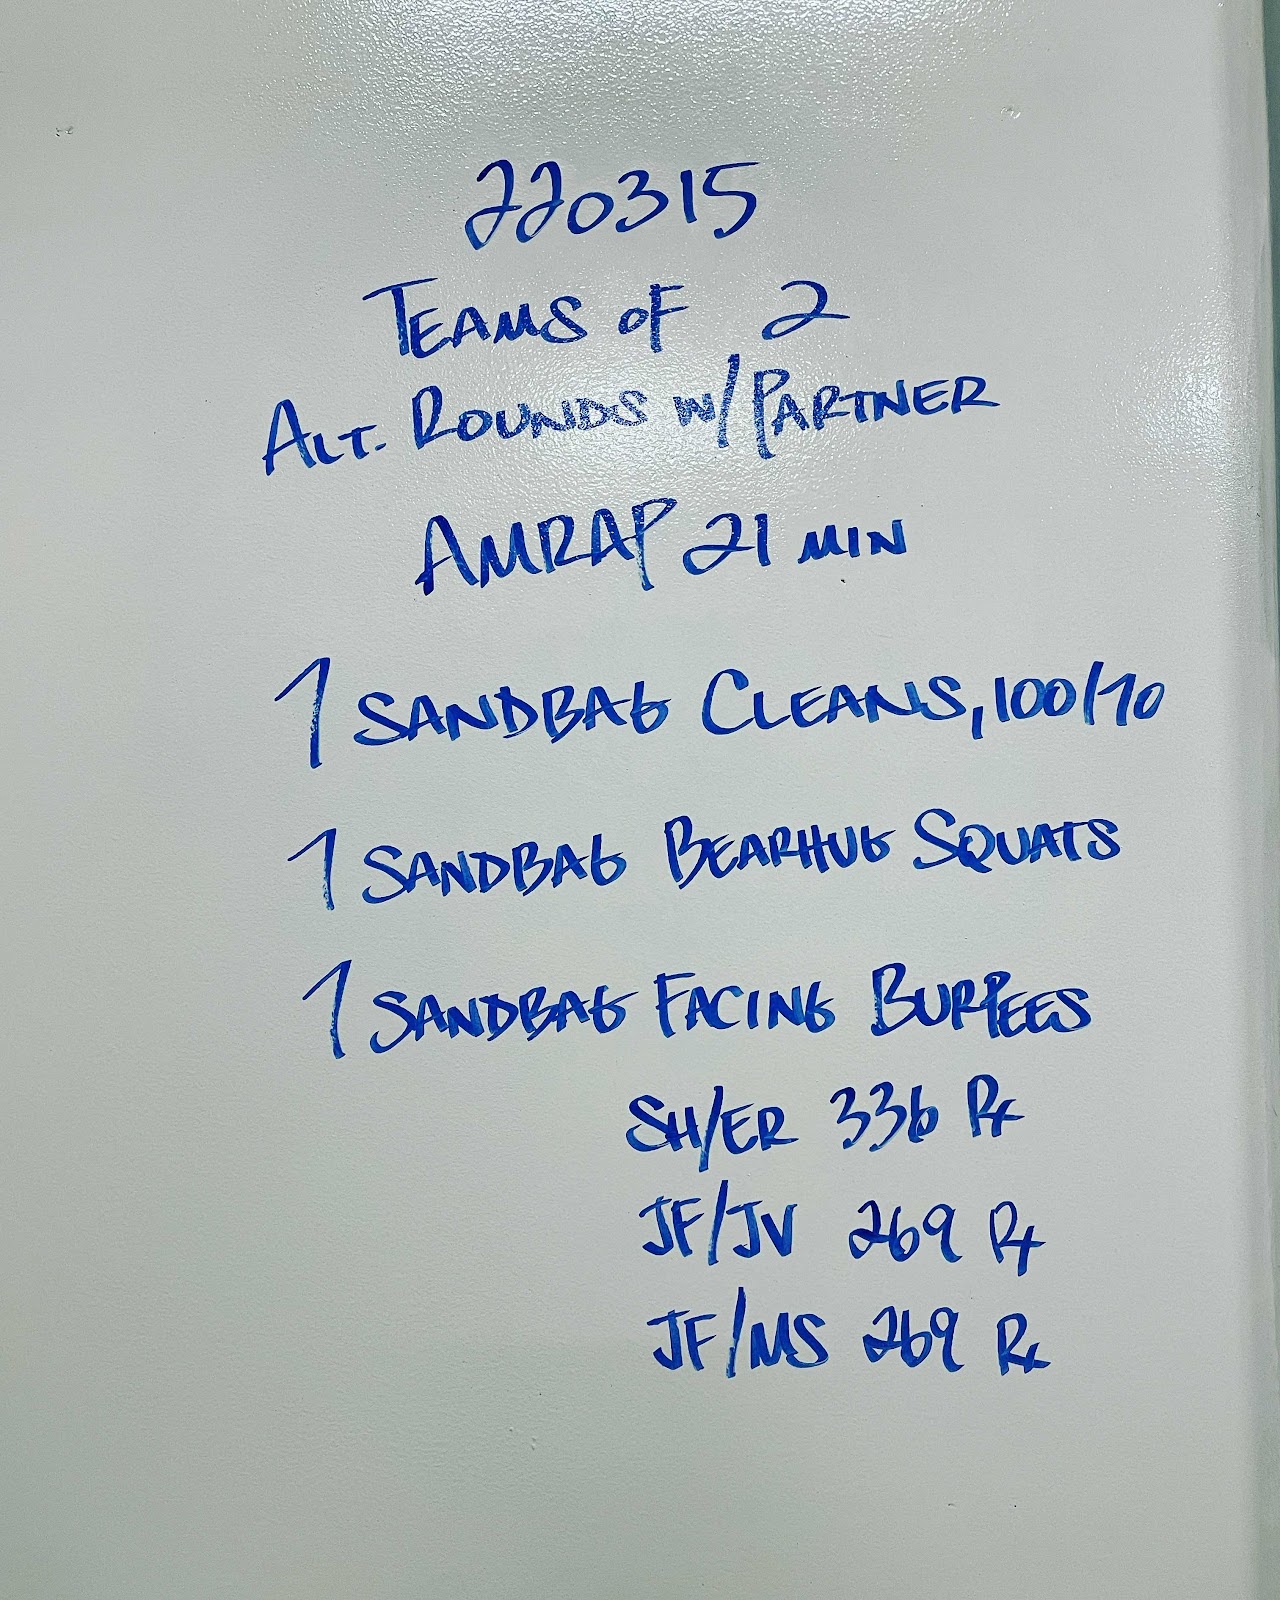 220315
TEAMS OF 2
ALT. ROUNDS W/PARTNER
AMRAP 21 MIN
1 SANDBAG CLEANS, 100/70
1 SANDBAG BEARHUG SQUATS
1 SANDBAG FACING BURPEES
SH/ER 336 Rx
JF/JV 269 Rx
JF/MS 269 Rx